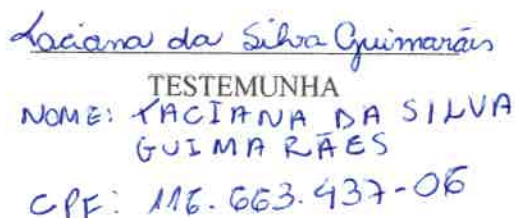 Taciana da Silva Guimarães
TESTEMUNHA
NOME: TACIANA DA SILVA
GUIMARÃES
CPF: 116.663.437-06